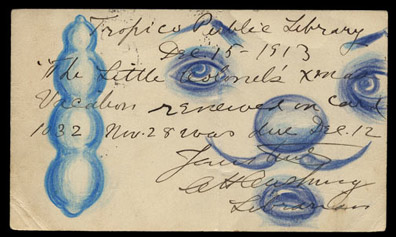 Tropico Public Library
Dec 15 1913
"The Little Colonel's Xmas
Vacation renewed on card
1032 Nov. 28 was due Dec. 12
Librarian